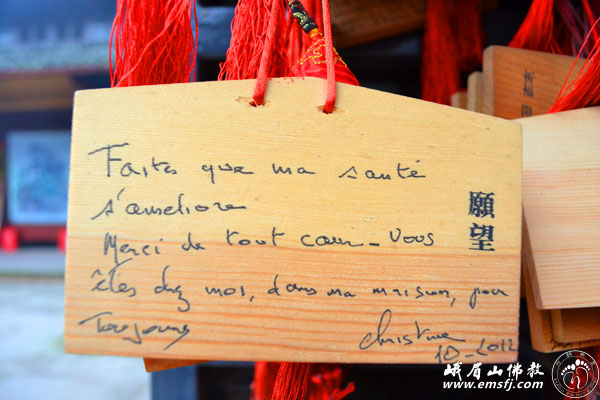 Faites que ma santé
s'améliore
Merci de tout cœur. Vous
êtes chez moi, dans ma maison, pour
Toujours
Christine
10-2012
願望
峨眉山佛教
www.emsfj.com